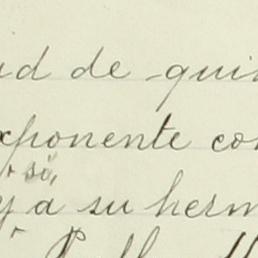 ud de quin
xponente con
r sí,
y a su herm